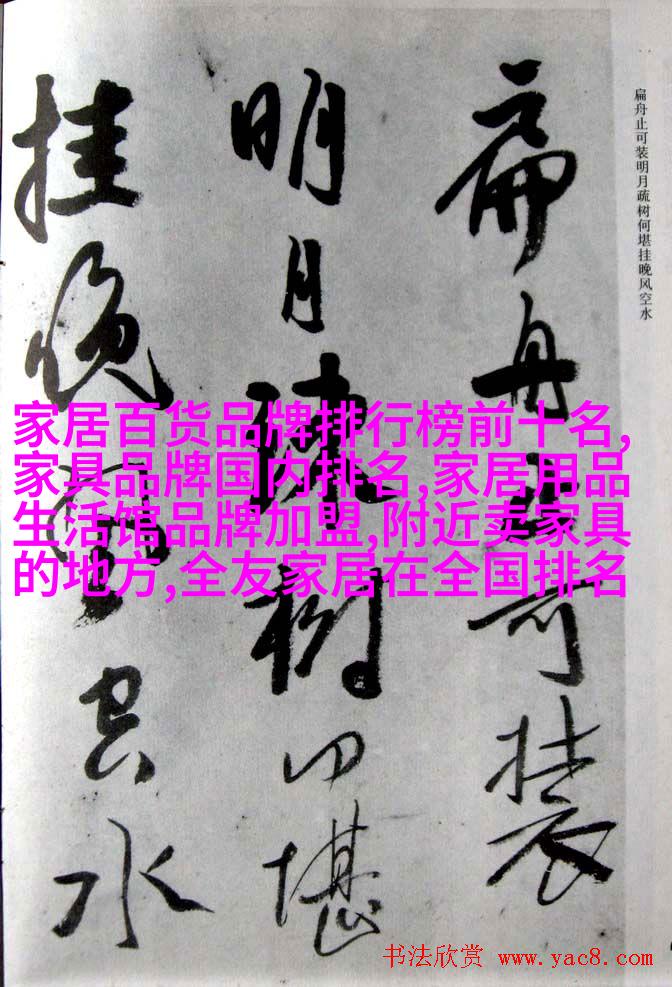 扁舟止可装
明月疏树何堪
挂晚风空水
扁舟止可装明月疏树何堪挂晚风空水
家居百货品牌排行榜前十名,
家具品牌国内排名,家居用品
生活馆品牌加盟,附近卖家具
的地方,全友家居在全国排名
书法欣赏 www.yac8.com